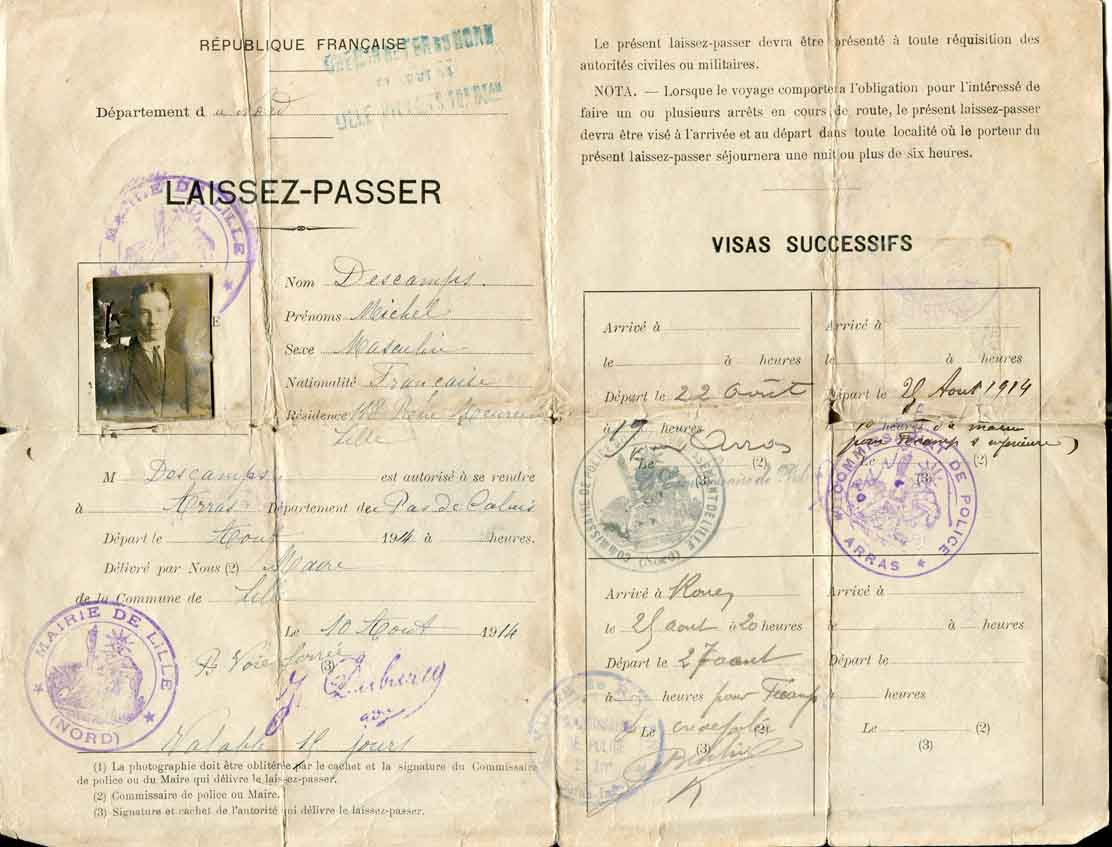 RÉPUBLIQUE FRANÇAISE
Département du Nord
LAISSEZ-PASSER
MAIRIE DE LILLE
Nom Descamps
Prénoms Michel
Sexe Masculin
Nationalité Française
Résidence
Lille
M Descamps est autorisé à se rendre
à Arras Département du Pas de Calais
Départ le Aout 1914 à heures.
Délivré par Nous (2) Maire
de la Commune de Lille
Le 10 Aout 1914
Voie ferrée
(3)
MAIRIE DE LILLE
(NORD)
Valable 15 jours
(1) La photographie doit être oblitérée par le cachet et la signature du Commissaire
de police ou du Maire qui délivre le laissez-passer.
(2) Commissaire de police ou Maire.
(3) Signature et cachet de l'autorité qui délivre le laissez-passer.
Le présent laissez-passer devra être présenté à toute réquisition des
autorités civiles ou militaires.
NOTA. — Lorsque le voyage comportera l'obligation pour l'intéressé de
faire un ou plusieurs arrêts en cours de route, le présent laissez-passer
devra être visé à l'arrivée et au départ dans toute localité où le porteur du
présent laissez-passer séjournera une nuit ou plus de six heures.
VISAS SUCCESSIFS
Arrivé à
le à heures
Départ le 22 Août
à 19 heures
pour Arras
Le (2)
(3)
COMMISSAIRE DE POLICE
LILLE
(NORD)
Arrivé à
le à heures
Départ le 25 Aout 1914
heures du matin
pour Fécamp
Le (2)
(3)
COMMISSARIAT DE POLICE
ARRAS
Arrivé à Rouen
le 25 aout à 20 heures
Départ le 27 aout
à heures pour Fécamp
Le (2)
(3)
DE POLICE
Arrivé à
le à heures
Départ le
à heures
Le (2)
(3)